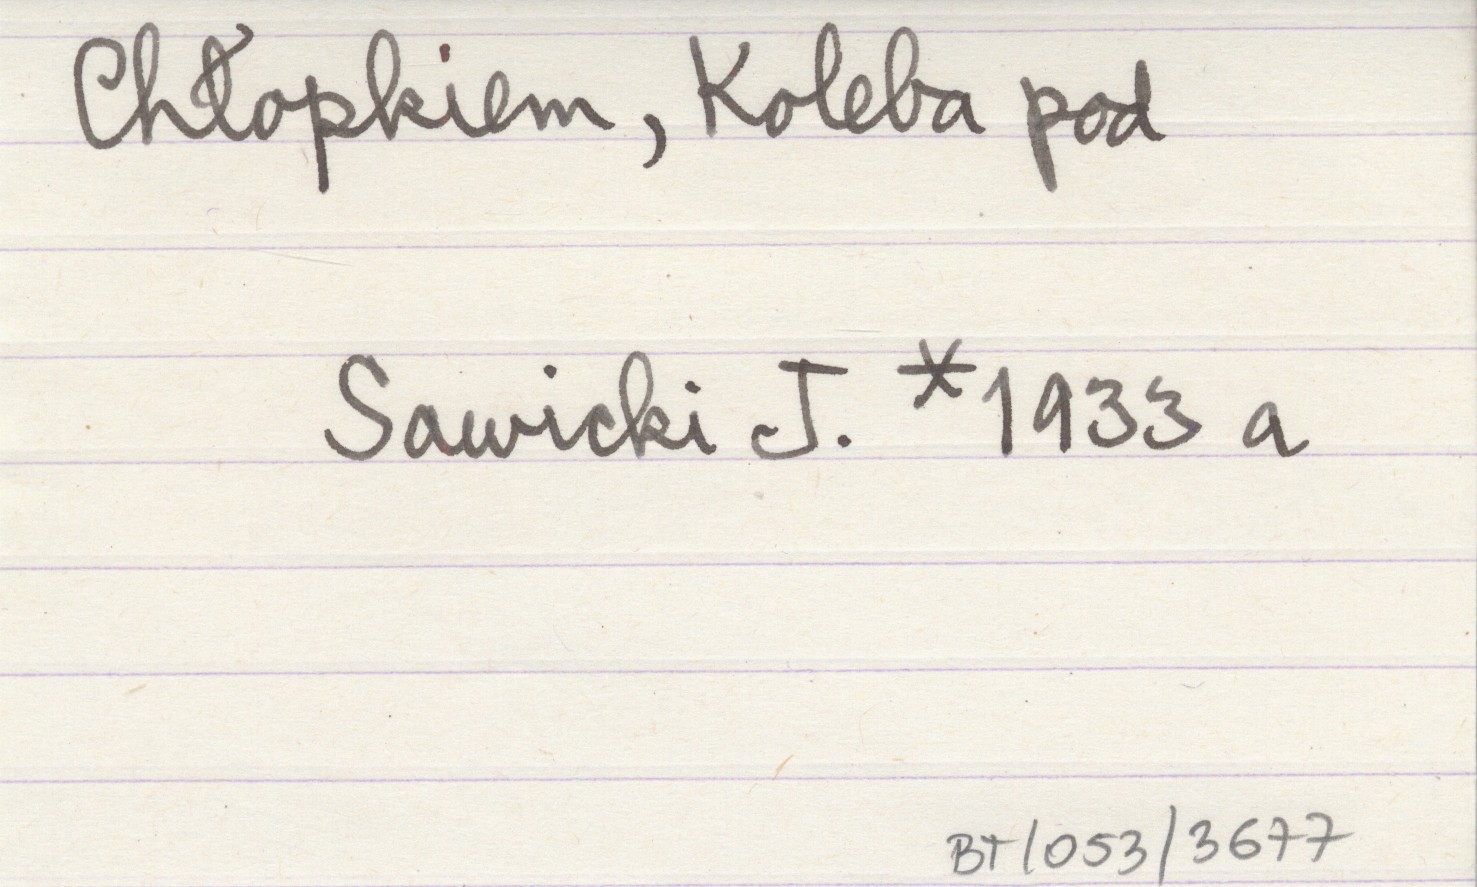 Chłopkiem, Koleba pod
Sawicki J. *1933 a
BT/053/3677